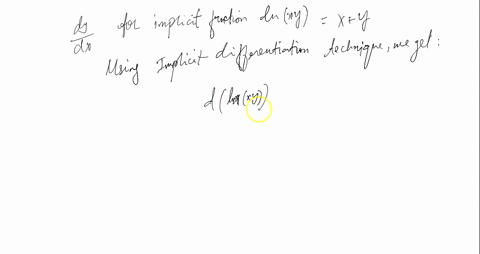 dy/dx for implicit function ln(xy) = x+y
Using Implicit differentiation technique, we get:
d(ln(xy))